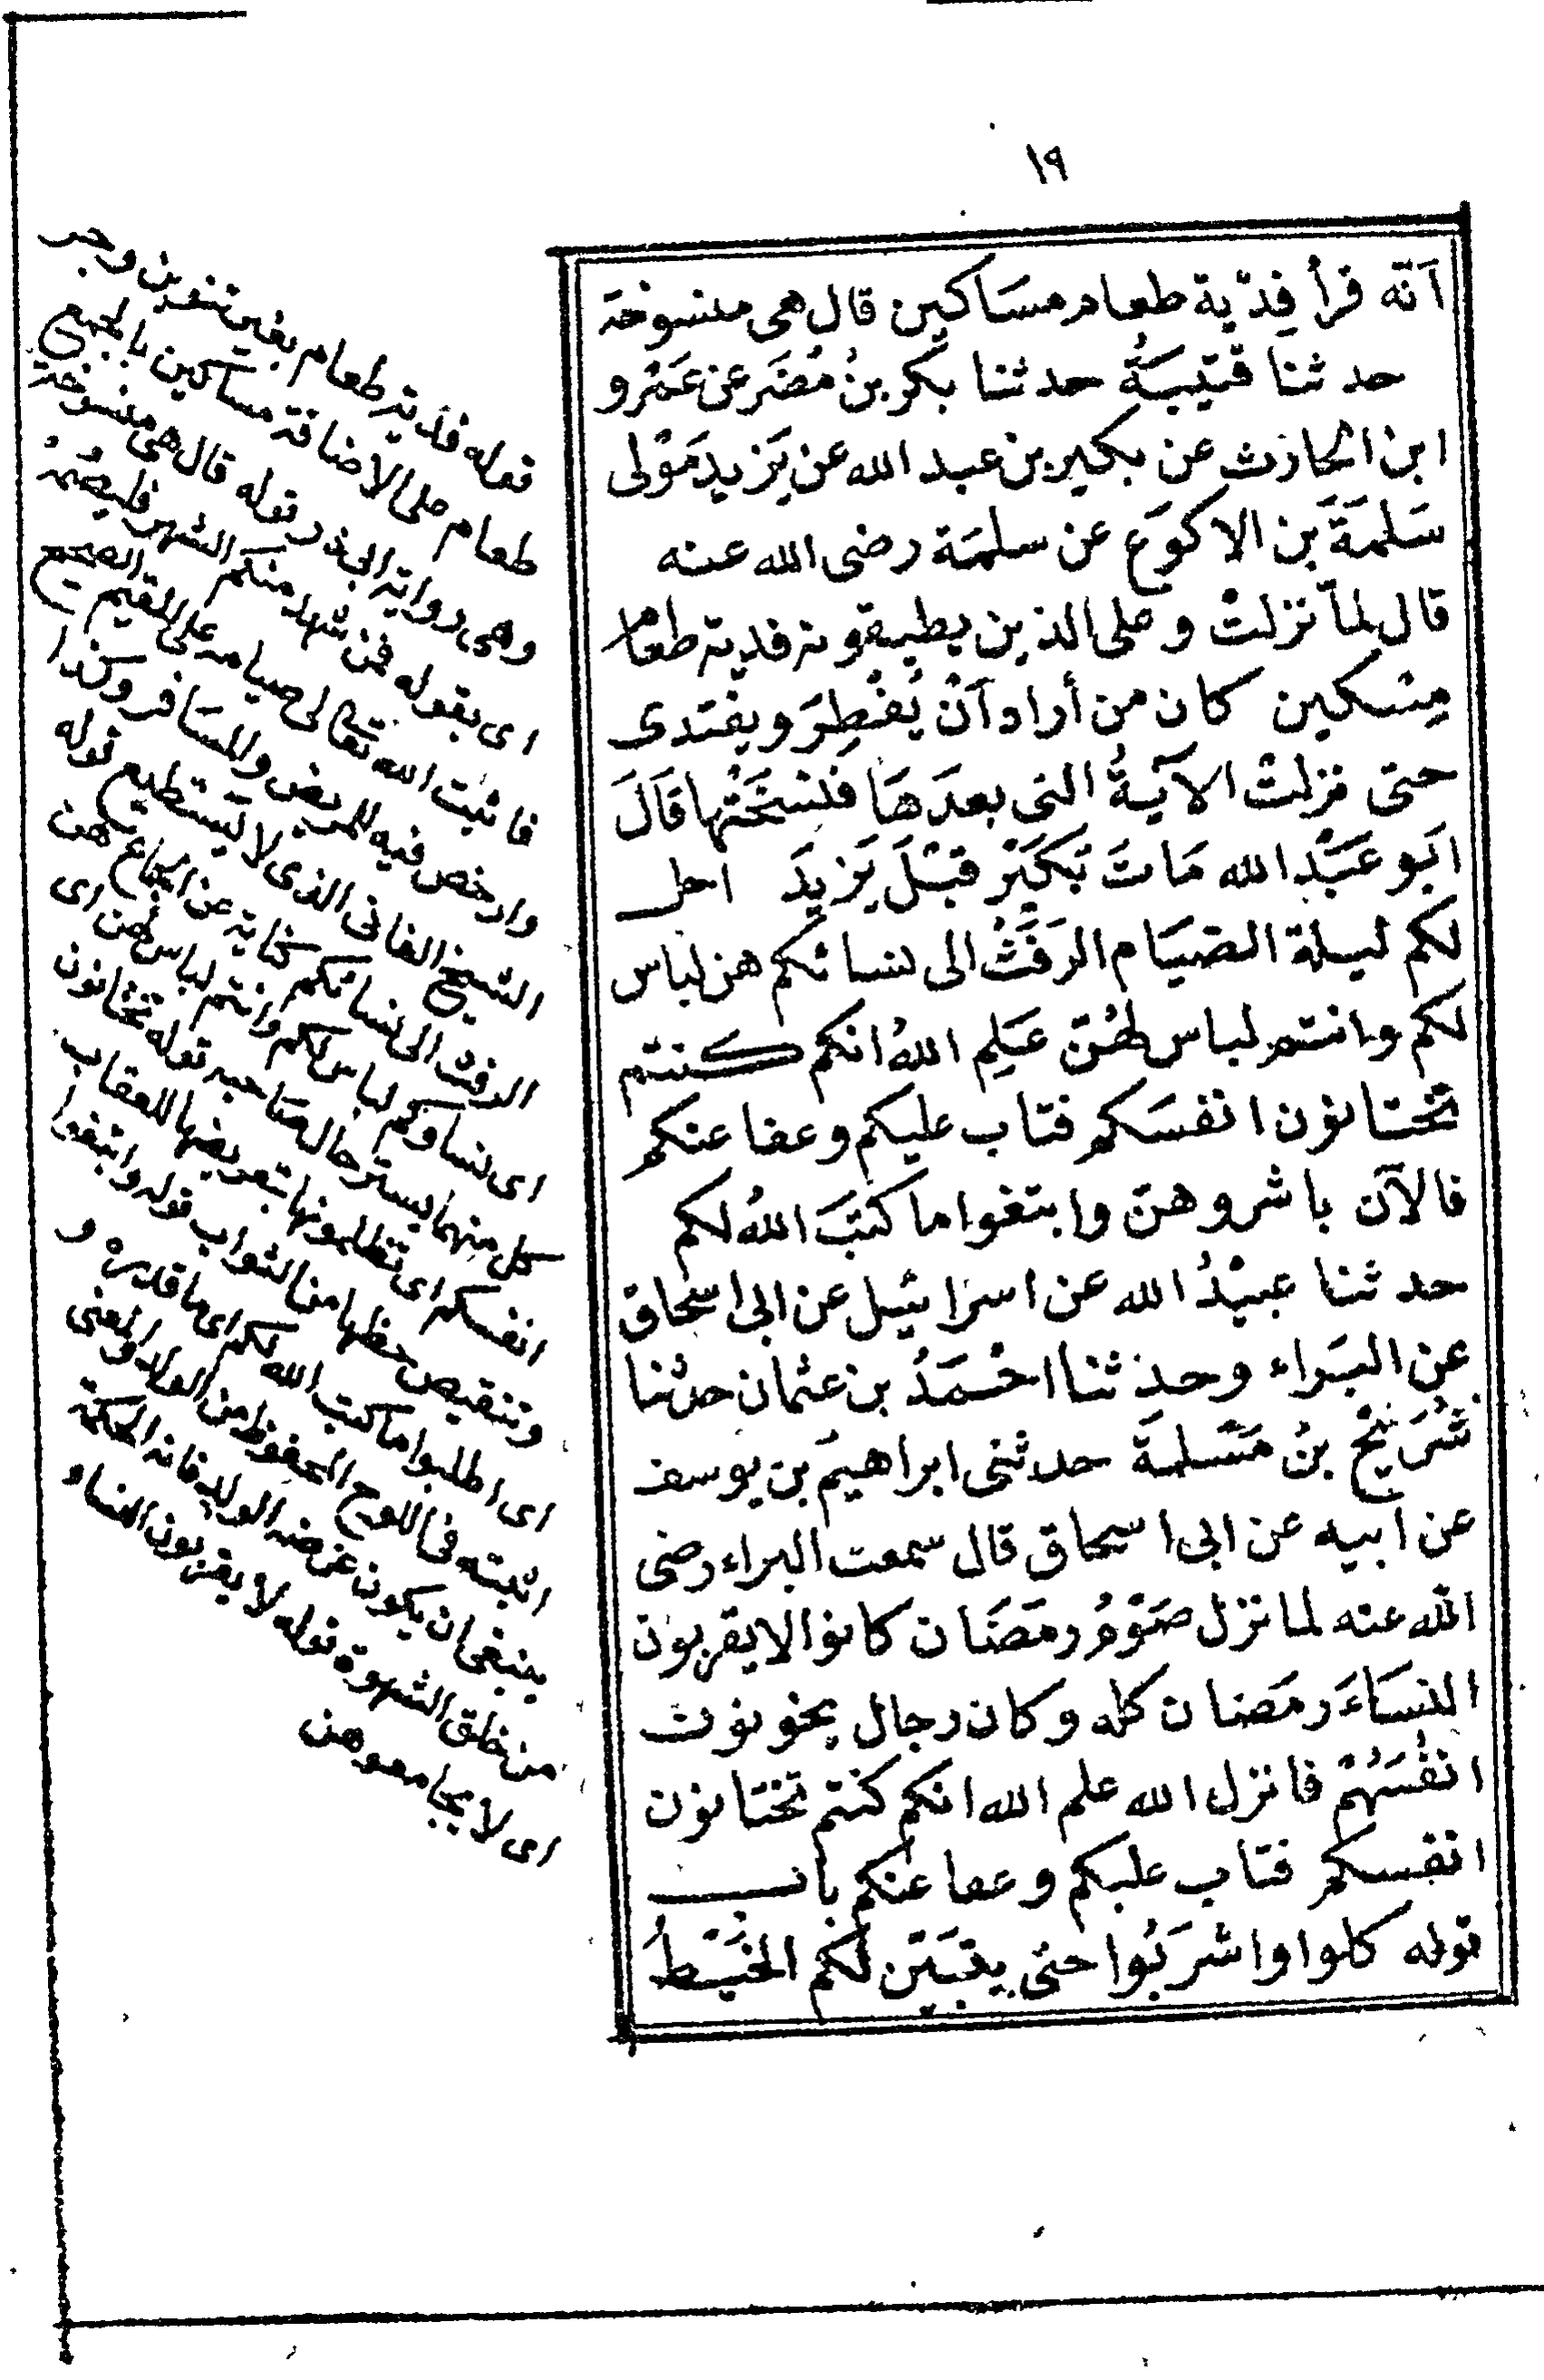 ١٩
اَنّه قرأ فِدْية طعام مسَاكين قال هى منسوخة
حدثنا قتيبَةُ حدثنا بَكر بنُ مُضَر عن عَمْرو
ابن الحارث عن بكير بن عبد الله عن يَزيد مَوْلى
سَلمَةَ بن الاكوَع عن سلمَة رضى الله عنه
قال لمّا نزلتْ وعلى الذين يطيقونه فدية طعام
مِسْكين كان من أراد اَنْ يُفْطِرَ ويفتدى
حتى نزلتْ الآيَةُ التى بعدَهَا فَنسَخَتْها قَالَ
اَبو عَبْد الله مَاتَ بُكَيْر قبْلَ يَزيدَ احل
لكم ليلة الصيَام الرَفَثُ الى نسائكم هن لباس
لكم وانتم لباس لهُنّ عَلِم اللهُ انكم كنتم
تختانون انفسَكم فتاب عليكم وعفا عنكم
فالآن باشروهنّ وابتغوا ما كتبَ اللهُ لكم
حدثنا عبيْدُ الله عن اسرائيل عن ابى اسحاق
عن البَراء وحدثنا احْمَدُ بن عثمان حدثنا
شُرَيْحُ بنُ مَسْلمةَ حدثنى ابراهيمَ بن يوسف
عن ابيه عن ابى اسحاق قال سمعت البراء رضى
الله عنه لما نزل صَوْمُ رمَضَان كانوا لا يقربون
النسَاءَ رمَضان كله وكان رجال يخونون
انفُسَهُمْ فانزل الله علم الله انكم كنتم تختانون
انفسكم فتاب عليكم وعفا عنكم باب
قوله كلوا واشرَبُوا حتى يتبَيّن لكم الخيْطُ
قوله فدية طعام بغير تنوين وجر
طعام على الاضافة مساكين بالجمع
وهى رواية ابى ذر قوله قال هى منسوخة
اى بقوله فمن شهد منكم الشهر فليصُمْهُ
فاثبت الله تعالى صيامه على المقيم الصحيح
وارخص فيه للمريض وللمسَافر وكذا
الشيخ الفانى الذى لا يستطيع قوله
الرفث الى نسائكم كناية عن الجماع هن
اى نساؤكم لباس لكم وانتم لباس لهن اى
كل منهما يستر حال صَاحبه قوله تختانون
انفسكم اى تظلمونها بتعريضها للعقاب
وتنقيص حظها من الثواب قوله وابتغوا
اى اطلبوا ما كتب الله لكم اى ما قدره و
اثبته فى اللوح المحفوظ من الولد والمعنى
ينبغى ان يكون غرضه الولد فانه الحكمة
من خلق الشهوة قوله لا يقربون النساء
اى لا يجامعوهن